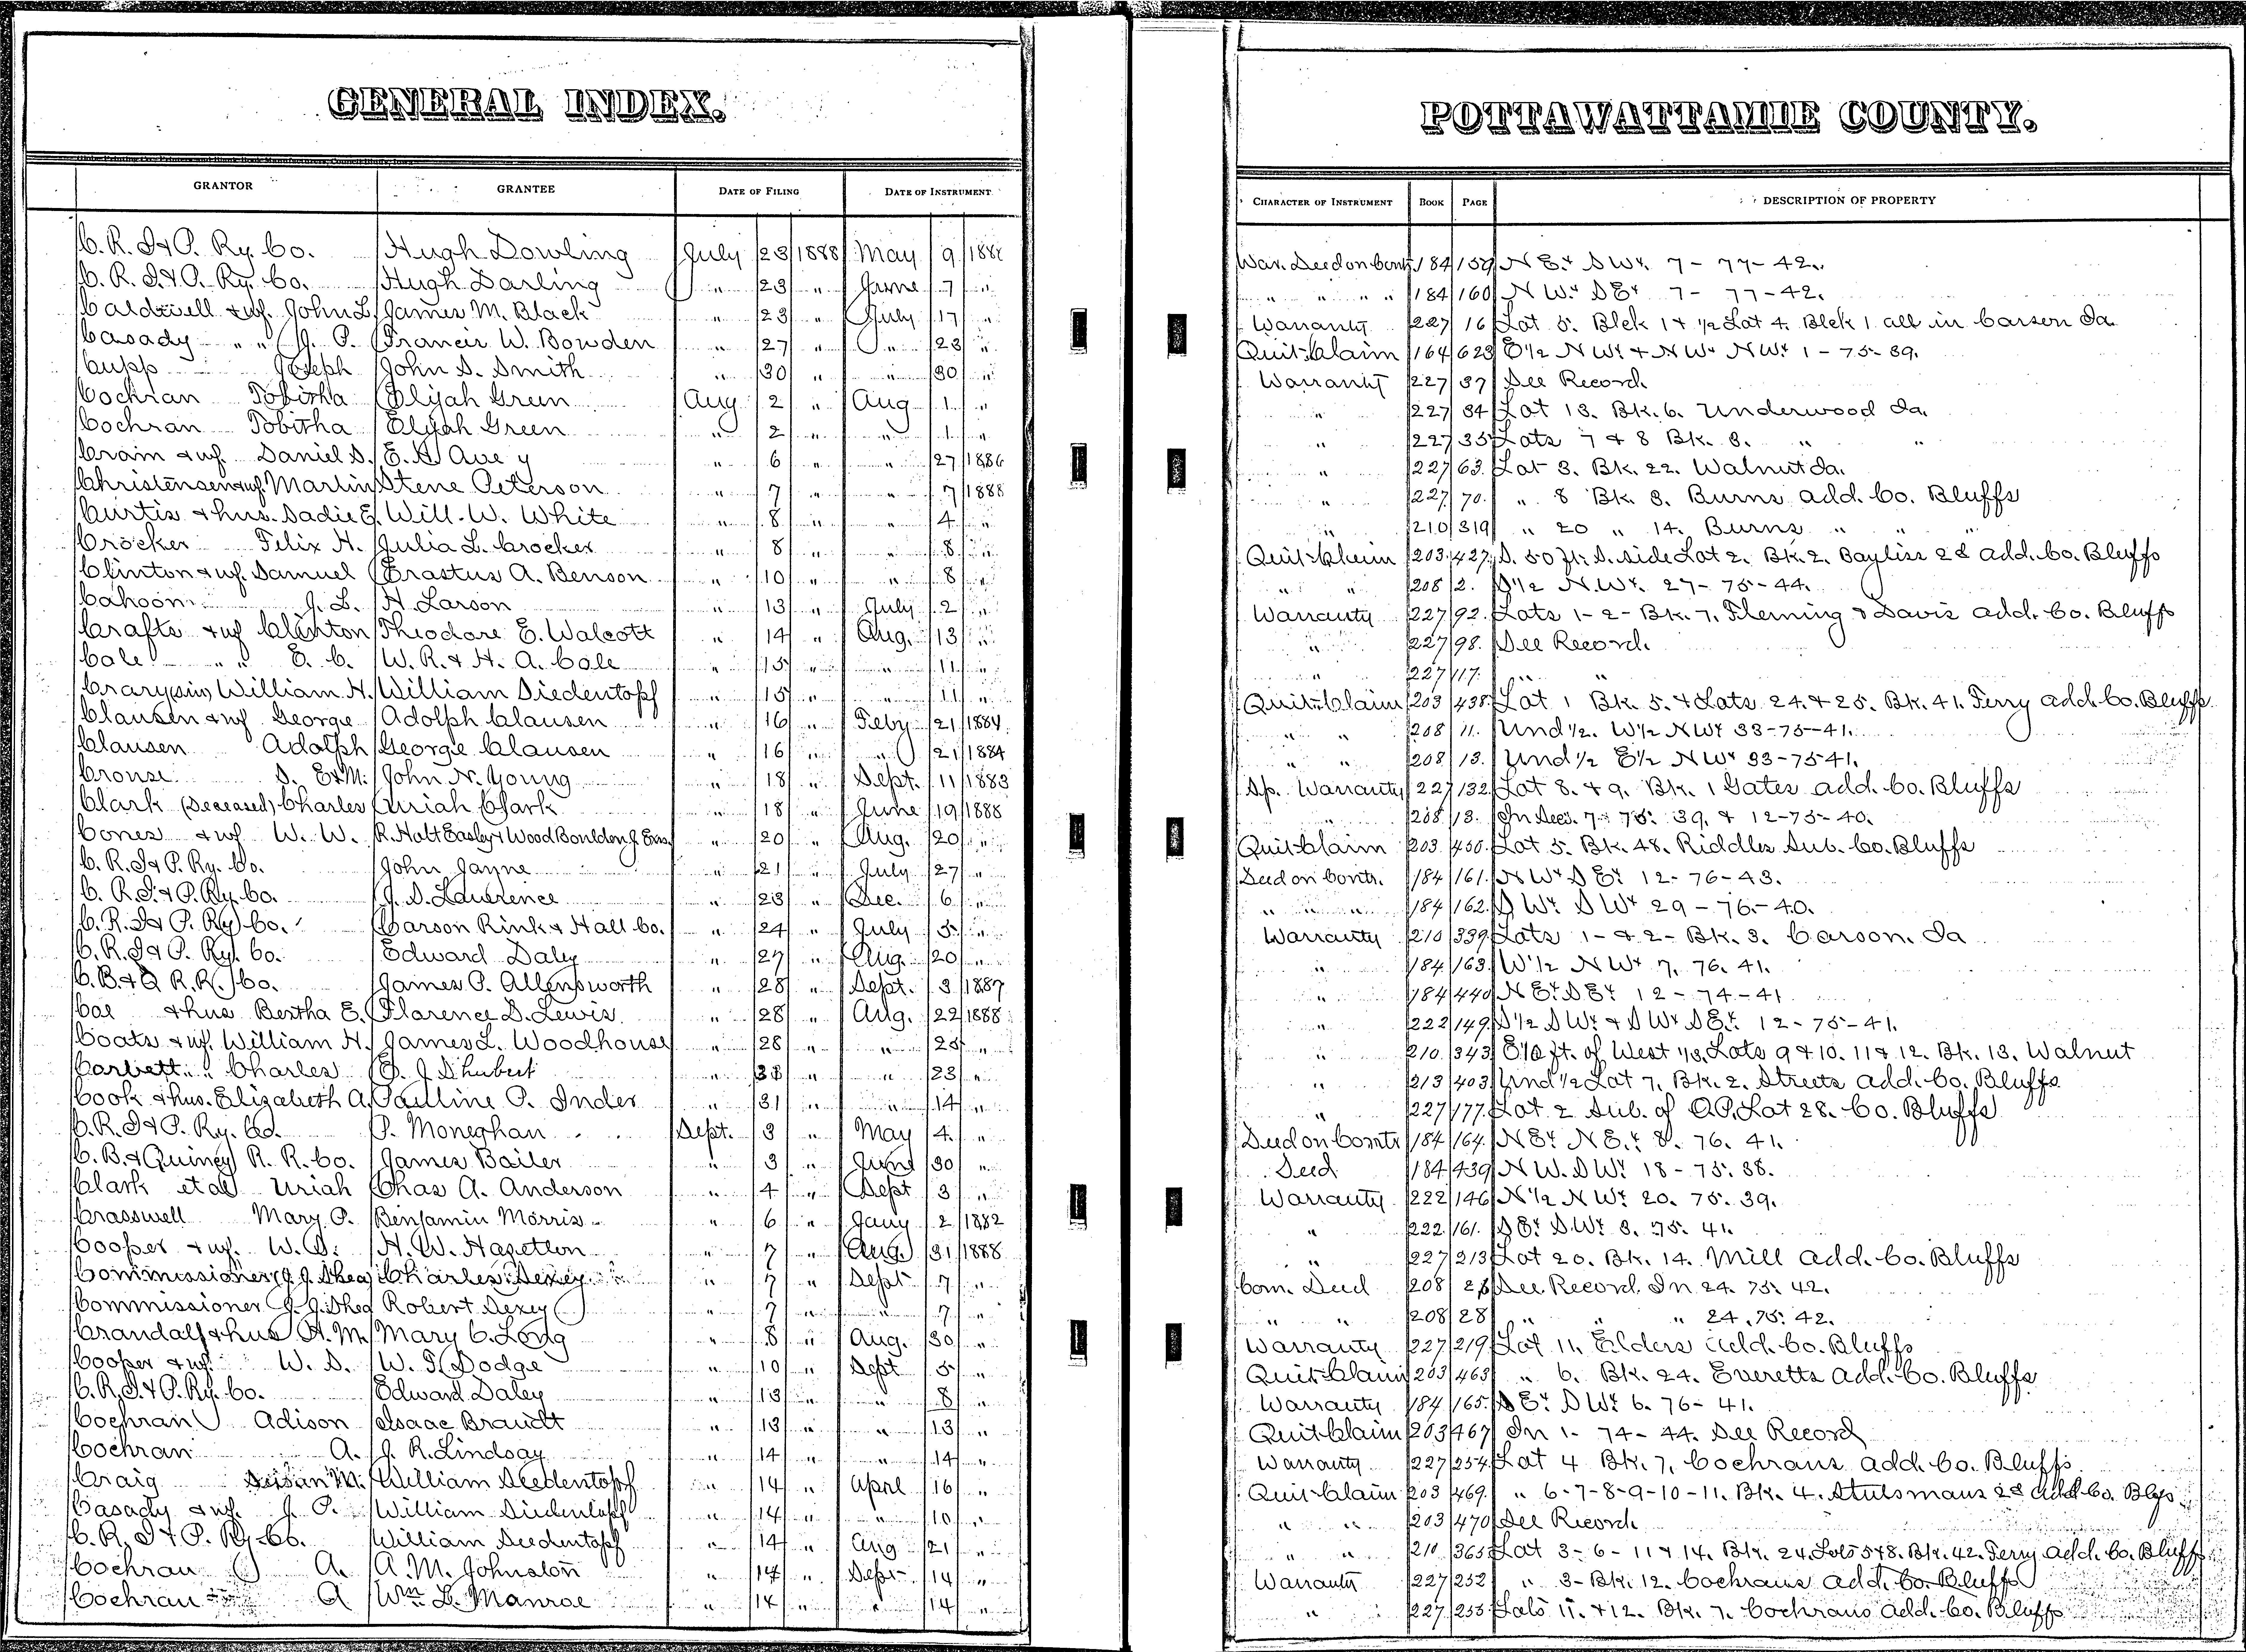 GENERAL INDEX.
GRANTOR GRANTEE DATE OF FILING DATE OF INSTRUMENT
C. R. I & P. Ry. Co. Hugh Dowling July 23 1888 May 9 1888
C. R. I. & P. Ry. Co. Hugh Darling " 23 " June 7 "
Caldwell & wf. John L. James M. Black " 23 " July 17 "
Casady " " J. P. Francis W. Bowden " 27 " " 23 "
Cupp Joseph John S. Smith " 30 " " 30 "
Cochran Tobitha Elijah Green Aug 2 " Aug 1 "
Cochran Tobitha Elijah Green " 2 " " 1 "
Crain & wf. Daniel S. E. H. Avey " 6 " " 27 1886
Christensen & wf. Martin Stene Peterson " 7 " " 7 1888
Curtis & hus. Sadie E. Will. W. White " 8 " " 4 "
Crocker Felix H. Julia L. Crocker " 8 " " 8 "
Clinton & wf. Samuel Erastus A. Benson " 10 " " 8 "
Cahoon J. L. N. Larson " 13 " July 2 "
Crafts & wf Clinton Theodore E. Walcott " 14 " Aug. 13 "
Cole " " E. C. W. R. & H. A. Cole " 15 " " 11 "
Crary (sin) William H. William Siedentopf " 15 " " 11 "
Clausen & wf George Adolph Clausen " 16 " Feby 21 1884
Clausen Adolph George Clausen " 16 " " 21 1884
Crouse S. E & M. John N. Young " 18 " Sept. 11 1883
Clark (Deceased) Charles Uriah Clark " 18 " June 19 1888
Cones & wf W. W. R. Holt Easley & Wood Bouldon J. Exrs. " 20 " Aug. 20 "
C. R. I & P. Ry. Co. John Jayne " 21 " July 27 "
C. R. I. & P. Ry. Co. J. S. Lawrence " 23 " Dec. 6 "
C. R. I & P. Ry Co. Carson Rink & Hall Co. " 24 " July 5 "
C. R. I & P. Ry. Co. Edward Daley " 27 " Aug. 20 "
C. B. & Q R. R. Co. James P. Allensworth " 28 " Sept. 3 1887
Coe & hus Bertha E. Florence D. Lewis " 28 " Aug. 22 1888
Coats & wf. William H. James L. Woodhouse " 28 " " 25 "
Corbett " Charles E. J. Shubert " 31 " " 23 "
Cook & hus. Elizabeth A. Pauline P. Inder " 31 " " 14 "
C. R. I & P. Ry. Co. P. Moneghan Sept. 3 " May 4 "
C. B. & Quincy R. R. Co. James Bailer " 3 " June 30 "
Clark et al Uriah Chas A. Anderson " 4 " Sept 3 "
Crasswell Mary P. Benjamin Morris " 6 " Jany 2 1882
Cooper & wf. W. S. H. W. Hazelton " 7 " Aug. 31 1888
Commissioner (J. J. Shea) Charles Dexey " 7 " Sept 7 "
Commissioner J. J. Shea Robert Dexey " 7 " " 7 "
Crandall & hus H. M. Mary C. Long " 8 " Aug. 30 "
Cooper & wf. W. S. W. I. Dodge " 10 " Sept 5 "
C. R. I. & P. Ry. Co. Edward Daley " 13 " " 8 "
Cochran Adison Isaac Brandt " 13 " " 13 "
Cochran A. J. R. Lindsay " 14 " " 14 "
Craig Susan M. William Siedentopf " 14 " April 16 "
Casady & wf. J. P. William Siedentopf " 14 " " 10 "
C. R. I & P. Ry. Co. William Siedentopf " 14 " Aug 21 "
Cochran A. A. M. Johnston " 14 " Sept 14 "
Cochran A Wm L. Monroe " 14 " " 14 "
POTTAWATTAMIE COUNTY.
CHARACTER OF INSTRUMENT BOOK PAGE DESCRIPTION OF PROPERTY
War. Deed on Cont. 184 159 N E4 S W4. 7 - 77 - 42.
" " " " 184 160 N W4 S E4 7 - 77 - 42.
Warranty 227 16 Lot 5. Blck 1 & 1/2 Lot 4. Blck 1 all in Carson Ia.
Quit-Claim 164 623 E1/2 N W4 & N W4 N W4 1 - 75 - 39.
Warranty 227 37 See Record.
" 227 34 Lot 13. Bk. 6. Underwood Ia.
" 227 35 Lots 7 & 8 Bk. 8. " "
" 227 63 Lot 3. Bk. 22. Walnut Ia.
" 227 70 " 8 Bk. 8. Burns add. Co. Bluffs
" 210 319 " 20 " 14. Burns " " "
Quit-Claim 203 427 S. 50 ft. S. side Lot 2. Bk. 2. Bayliss 2d add. Co. Bluffs
" " 208 2. S1/2 N. W4. 27 - 75 - 44.
Warranty 227 92 Lots 1 - 2 - Bk. 7. Fleming & Davis add. Co. Bluffs
" 227 98. See Record.
" 227 117. " "
Quit-Claim 203 438. Lot 1 Bk. 5. & Lots 24. & 25. Bk. 41. Ferry add. Co. Bluffs
" " 208 11. Und 1/2. W1/2 N W4 33-75-41.
" " 208 13. Und 1/2 E1/2 N W4 33-75-41.
Sp. Warranty 227 132 Lot 8. & 9. Bk. 1 Gates add. Co. Bluffs
" 208 13. In Secs. 7 - 75. 39. & 12-75-40.
Quit-Claim 203 450. Lot 5. Bk. 48. Riddles Sub. Co. Bluffs
Deed on Contr. 184 161. N W4 S E4 12 - 76 - 43.
" " " 184 162. S W4 S W4 29 - 76 - 40.
Warranty 210 339 Lots 1 - & 2 - Bk. 3. Carson. Ia
" 184 163. W1/2 N W4 7. 76. 41.
" 184 440 N E4 S E4 12 - 74 - 41
" 222 149. S1/2 S W4 & S W4 S E4 12 - 75 - 41.
" 210. 343 E 10 ft. of West 1/3. Lots 9 & 10. 11 & 12. Bk. 13. Walnut
" 213 403 Und 1/2 Lot 7. Bk. 2. Streets add. Co. Bluffs
" 227 177 Lot 2 Sub. of O.P. Lot 28. Co. Bluffs
Deed on Contr 184 164. N E4 N E4 8. 76. 41.
Deed 184 439 N W. S W4 18 - 75. 38.
Warranty 222 146 N1/2 N W4 20. 75. 39.
" 222. 161. S E4 S W4 8. 75. 41.
" 227 213 Lot 20. Bk. 14. Mill add. Co. Bluffs
Com. Deed 208 See Record. In 24. 75. 42.
" " 208 28 " " " 24. 75. 42.
Warranty 227 219 Lot 11. Elders add. Co. Bluffs
Quit-Claim 203 463 " 6. Bk. 24. Everetts add. Co. Bluffs
Warranty 184 165. S E4 S W4 6. 76 - 41.
Quit-Claim 203 467 In 1 - 74 - 44. See Record
Warranty 227 254. Lot 4 Bk. 7. Cochrans add. Co. Bluffs
Quit-Claim 203 469. " 6-7-8-9-10-11. Bk. 4. Stutsmans 2d add. Co. Blfs.
" " 203 470 See Record
" " 210 365 Lot 3 - 6 - 11 & 14. Bk. 24. Lots 5 & 8. Bk. 42. Ferry add. Co. Bluffs
Warranty 227 252 " 3 - Bk. 12. Cochrans add. Co. Bluffs
" 227 255 Lots 11. & 12. Bk. 7. Cochrans add. Co. Bluffs